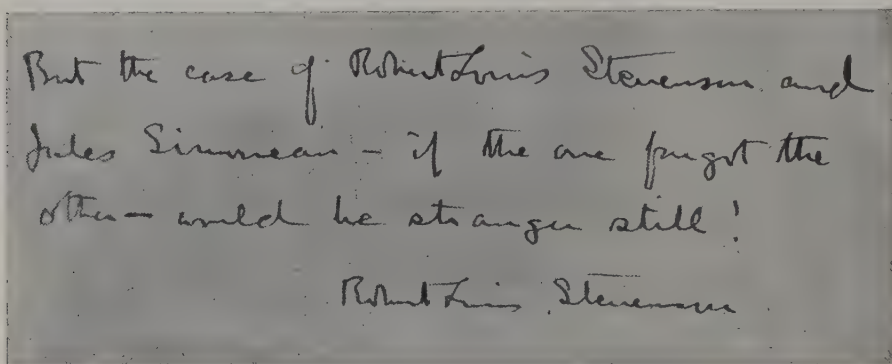 But the case of Robert Louis Stevenson and
Jules Simoneau – if the one forgot the
other – would be stranger still!
Robert Louis Stevenson